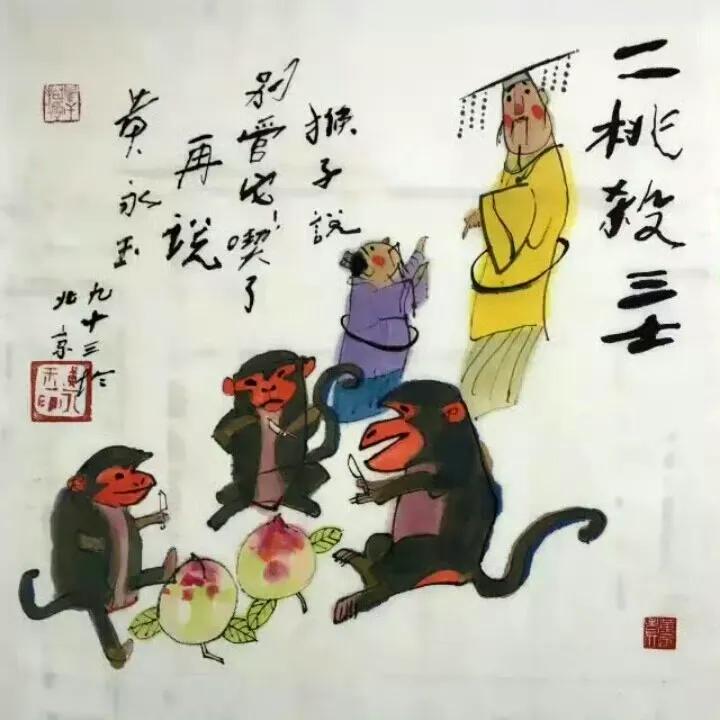 二桃殺三士
猴子說
別管它!喫了
再說
黄永玉
九十三於
北京
黄永玉印